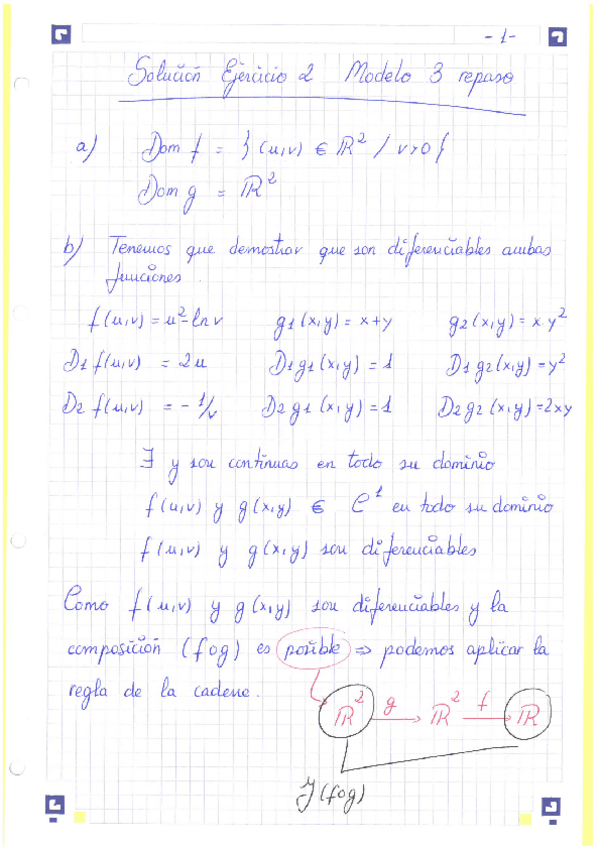 -1-
Solución Ejercicio 2 Modelo 3 repaso
a) Dom f = }(u,v) ∈ ℝ² / v>0{
Dom g = ℝ²
b) Tenemos que demostrar que son diferenciables ambas
funciones.
f(u,v)=u²-ln v g1(x,y)= x+y g2(x,y)= x·y²
D1 f(u,v) = 2u D1g1(x,y) = 1 D1g2(x,y)=y²
D2 f(u,v) = -1/v D2g1(x,y)=1 D2g2(x,y)=2xy
∃ y son continuas en todo su dominio
f(u,v) y g(x,y) ∈ C¹ en todo su dominio
f(u,v) y g(x,y) son diferenciables
Como f(u,v) y g(x,y) son diferenciables y la
composición (fog) es posible ⇒ podemos aplicar la
regla de la cadena.
ℝ² g→ ℝ² f→ ℝ
J(fog)